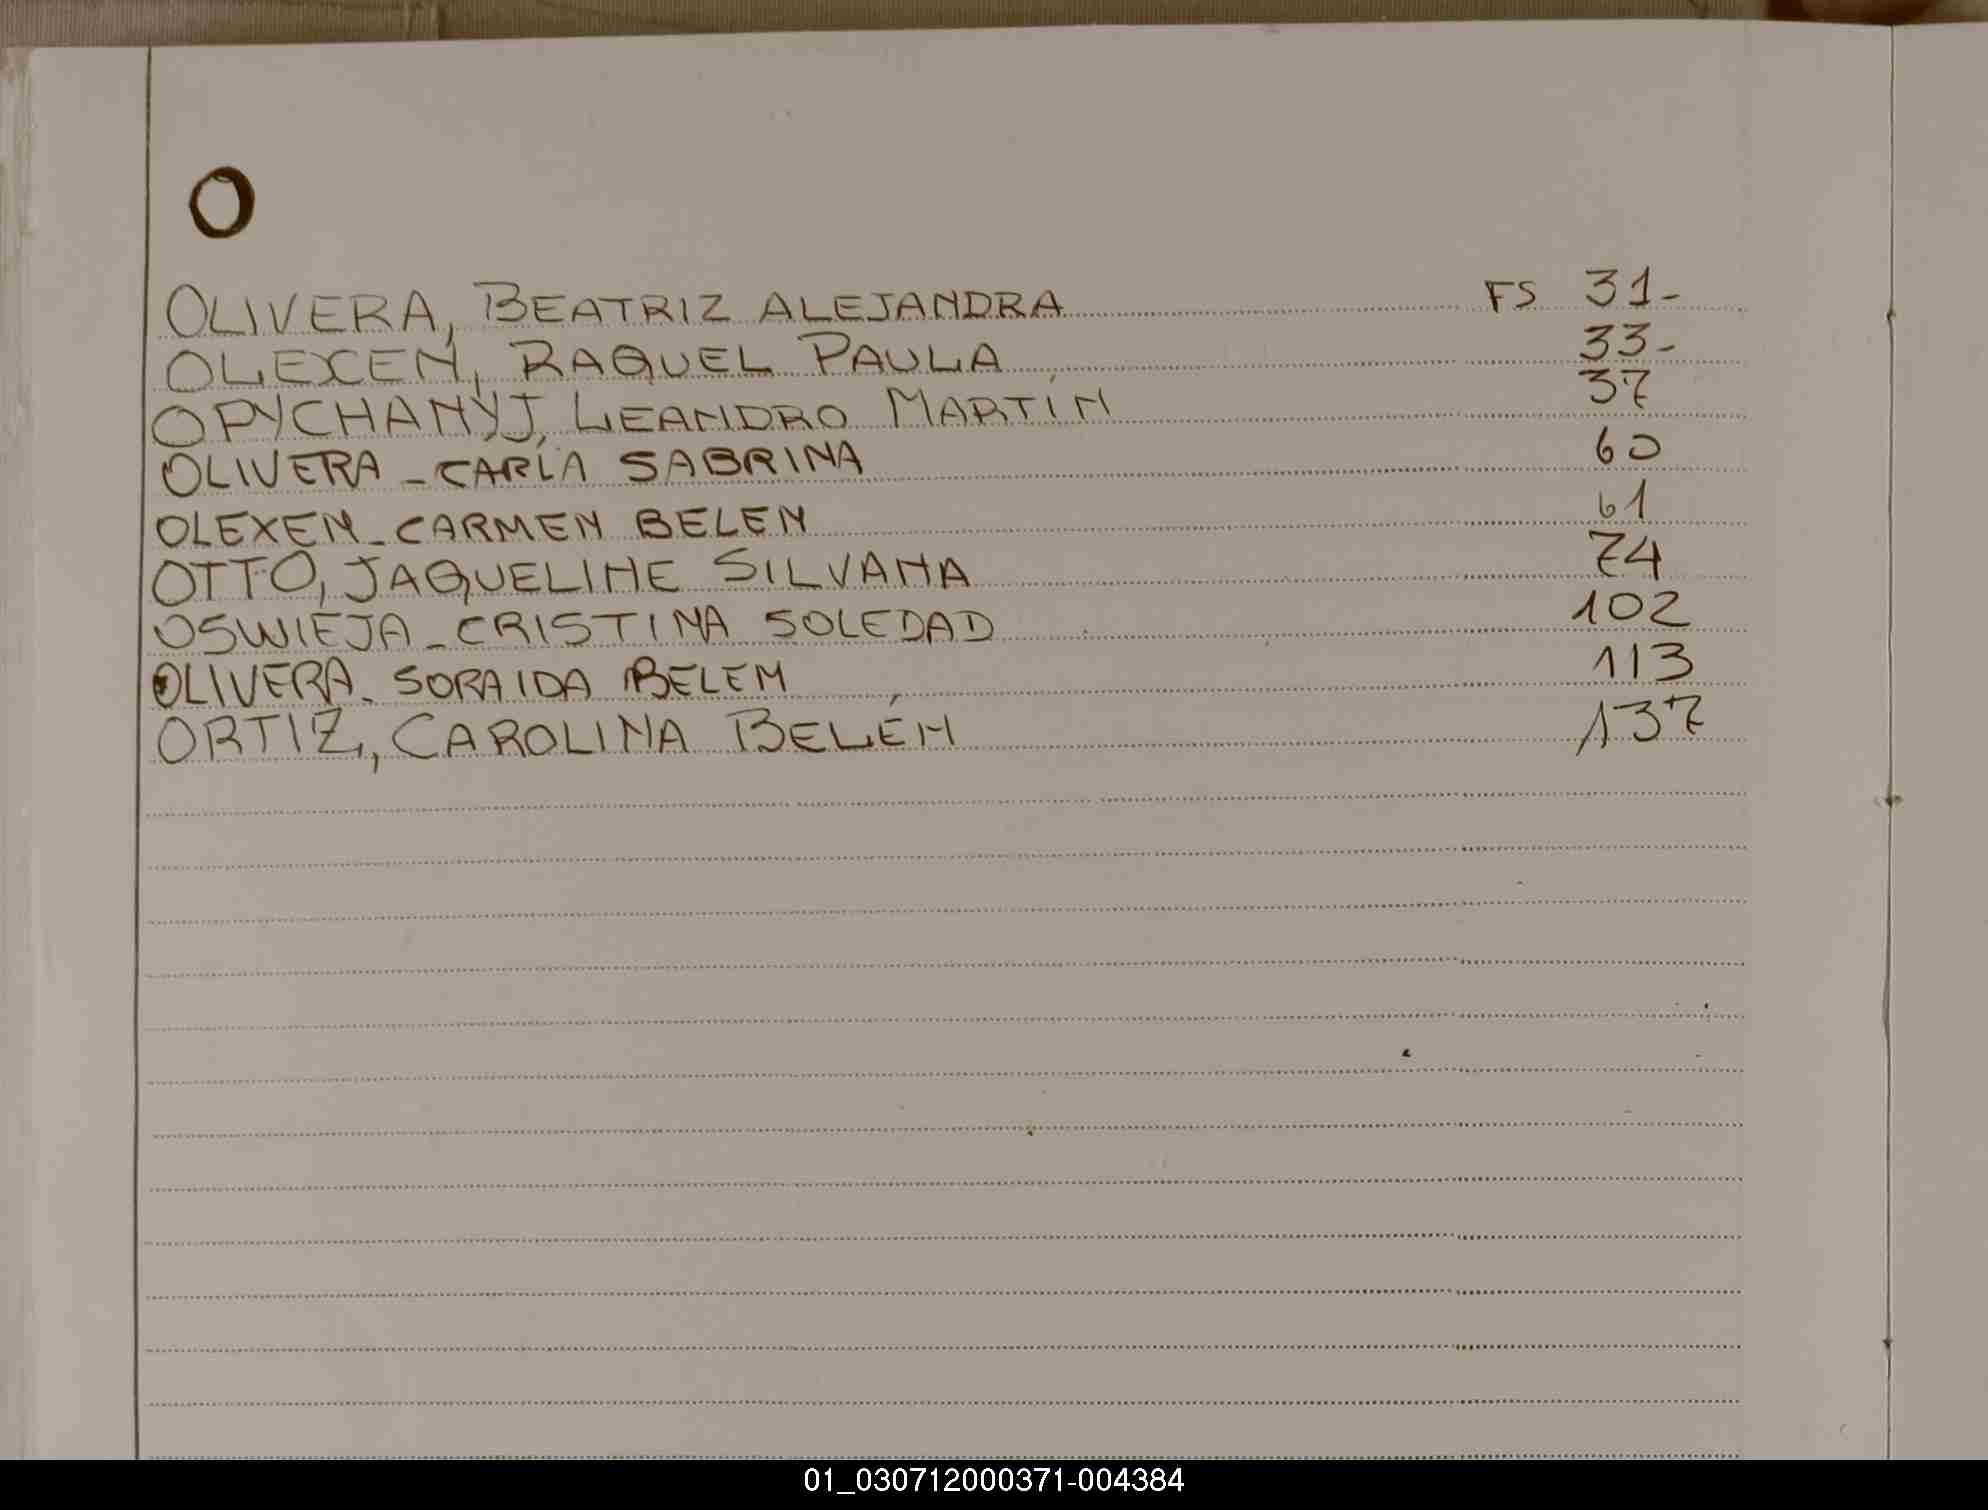 O
OLIVERA, BEATRIZ ALEJANDRA FS 31-
OLEXEN, RAQUEL PAULA 33-
OPYCHANYJ, LEANDRO MARTÍN 37
OLIVERA - CARLA SABRINA 60
OLEXEN - CARMEN BELEN 61
OTTO, JAQUELINE SILVANA 74
OSWIEJA - CRISTINA SOLEDAD 102
OLIVERA - SORAIDA BELEM 113
ORTIZ, CAROLINA BELÉN 137
01_030712000371-004384